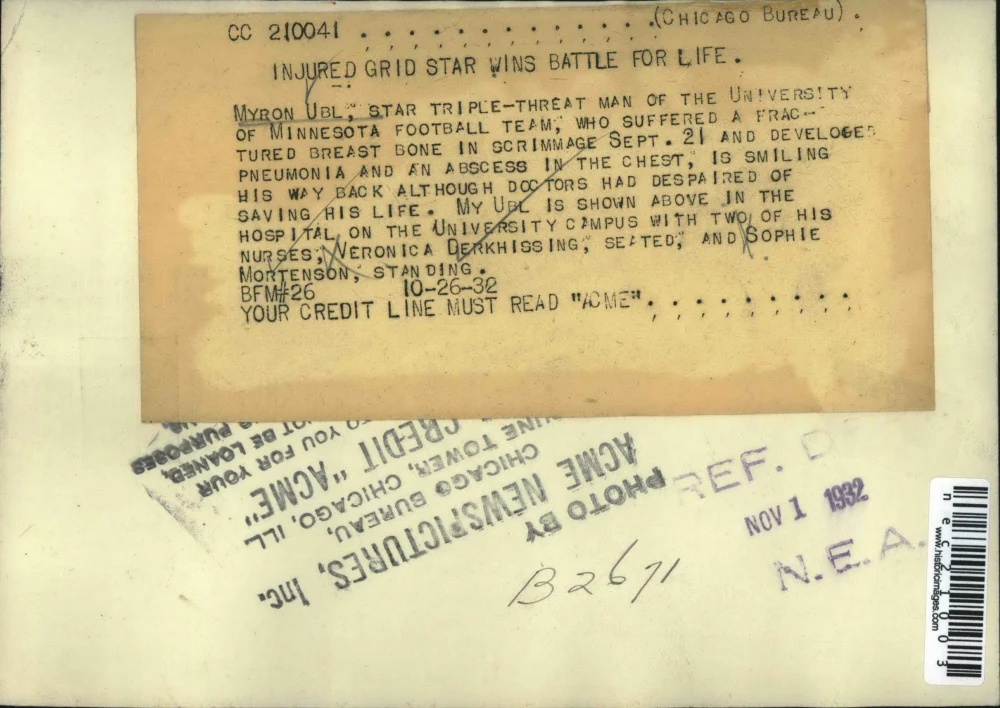 CC 210041 . . . . . . . . . . . . . (CHICAGO BUREAU) .
INJURED GRID STAR WINS BATTLE FOR LIFE.
MYRON UBL, STAR TRIPLE-THREAT MAN OF THE UNIVERSITY
OF MINNESOTA FOOTBALL TEAM, WHO SUFFERED A FRAC-
TURED BREAST BONE IN SCRIMMAGE SEPT. 21 AND DEVELOPED
PNEUMONIA AND AN ABSCESS IN THE CHEST, IS SMILING
HIS WAY BACK ALTHOUGH DOCTORS HAD DESPAIRED OF
SAVING HIS LIFE. MY UBL IS SHOWN ABOVE IN THE
HOSPITAL ON THE UNIVERSITY CAMPUS WITH TWO OF HIS
NURSES, VERONICA DERKHISSING, SEATED, AND SOPHIE
MORTENSON, STANDING.
BFM#26 10-26-32
YOUR CREDIT LINE MUST READ "ACME". . . . . . . . . .
PHOTO BY
ACME NEWSPICTURES, Inc.
CHICAGO BUREAU,
TOWER, CHICAGO, ILL
CREDIT "ACME"
TO YOU FOR YOUR
NOT BE LOANED,
PURPOSES
REF. D
NOV 1 1932
N.E.A.
B2671
www.historicimages.com
nec21003